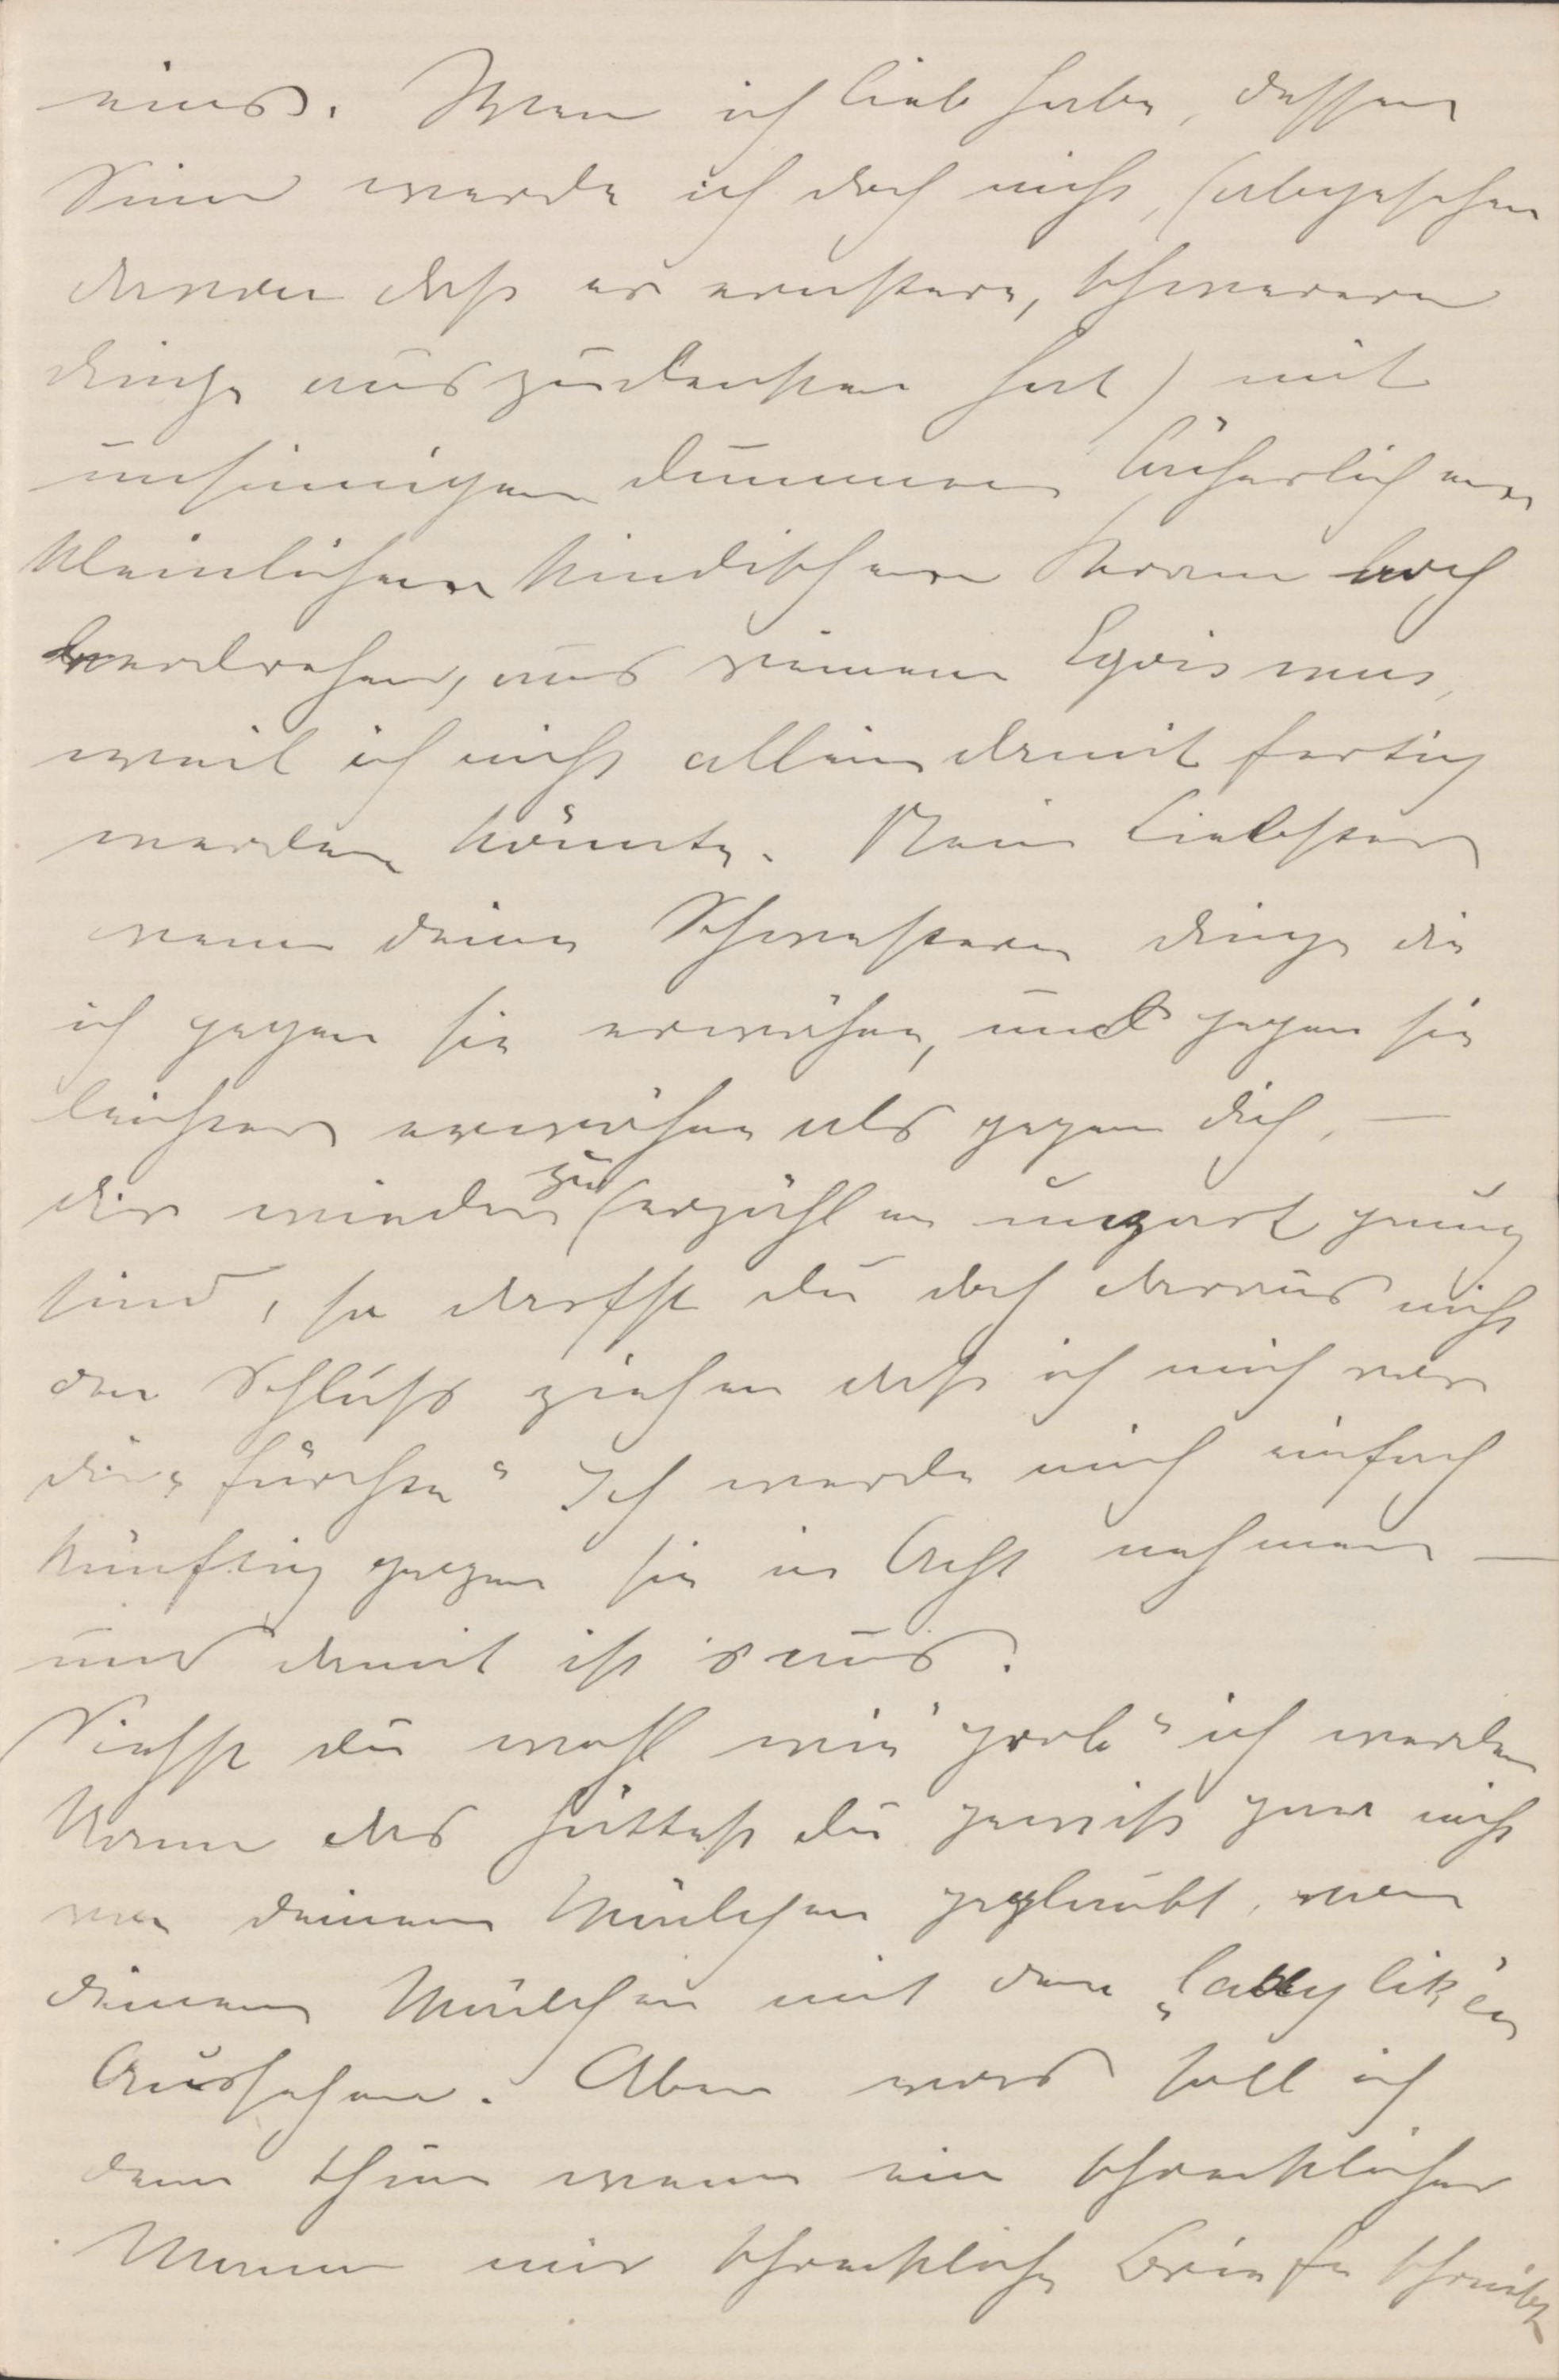 eins. Wen ich lieb habe, dessen
Sinn werde ich doch nicht, (abgesehen
davon daß er ernstere, schwerere
dinge auszudenken hat) mit
unsinnigem dummem lächerlichem
kleinlichem kindischem Kram
verdrehen, aus reinem Egoismus,
weil ich nicht allein damit fertig
werden könnte. Nein Liebster
wenn deine Schwestern dinge die
ich gegen sie erwähne, und gegen sie
leichter erwähne als gegen dich, —
dir wieder zu erzählen unzart genug
sind, so darfst du doch daraus nicht
den Schluß ziehen daß ich mich vor
dir „fürchte“ Ich werde mich einfach
künftig gegen sie in Acht nehmen —
und damit ist's aus.
Siehst du wohl wie „grob“ ich werden
kann das hättest du gewiß gar nicht
von deinem Mädchen geglaubt, von
deinem Mädchen mit dem „ladylik'en
Aussehen. Aber was soll ich
denn thun wenn ein schrecklicher
Mann mir schreckliche Briefe schreibt